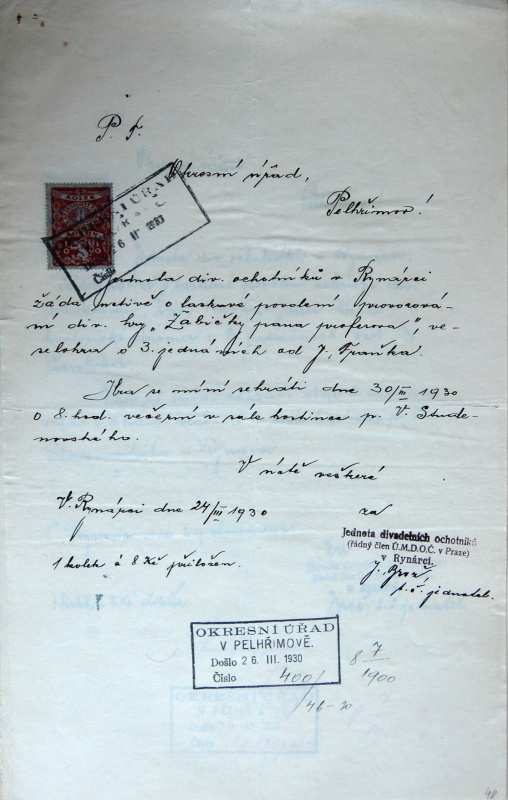 P. T.
Okresní úřad,
Pelhřimov!
KOLEK
Číslo
Jednota div. ochotníků v Rynárci
žádá uctivě o laskavé povolení provozová-
ní div. hry „Žabičky pana profesora", ve-
selohra o 3. jednáních od J. Fraňka.
Hra se míní sehráti dne 30/III 1930
o 8. hod. večerní v sále hostince p. V. Stude-
novského.
V úctě veškeré
V Rynárci dne 24/III 1930
za
Jednota divadelních ochotníků
(řádný člen Ú.M.D.O.Č. v Praze)
v Rynárci.
1 kolek á 8 Kč přiložen.
J. Brož,
t. č. jednatel.
OKRESNÍ ÚŘAD
V PELHŘIMOVĚ.
Došlo 26. III. 1930
Číslo 400/
46-30
8 7/1900
48